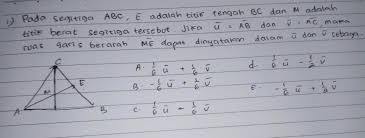 1) Pada segitiga ABC, E adalah titik tengah BC dan M adalah
titik berat segitiga tersebut Jika ū = AB dan v̄ = AC maka
ruas garis berarah ME dapat dinyatakan dalam ū dan v̄ sebagai
C
A. 1/6 ū + 1/6 v̄
d. 1/6 ū - 1/2 v̄
M
E
B. -1/6 ū + 1/6 v̄
E. -1/6 ū + 1/2 v̄
A
B
C. 1/6 ū - 1/6 v̄